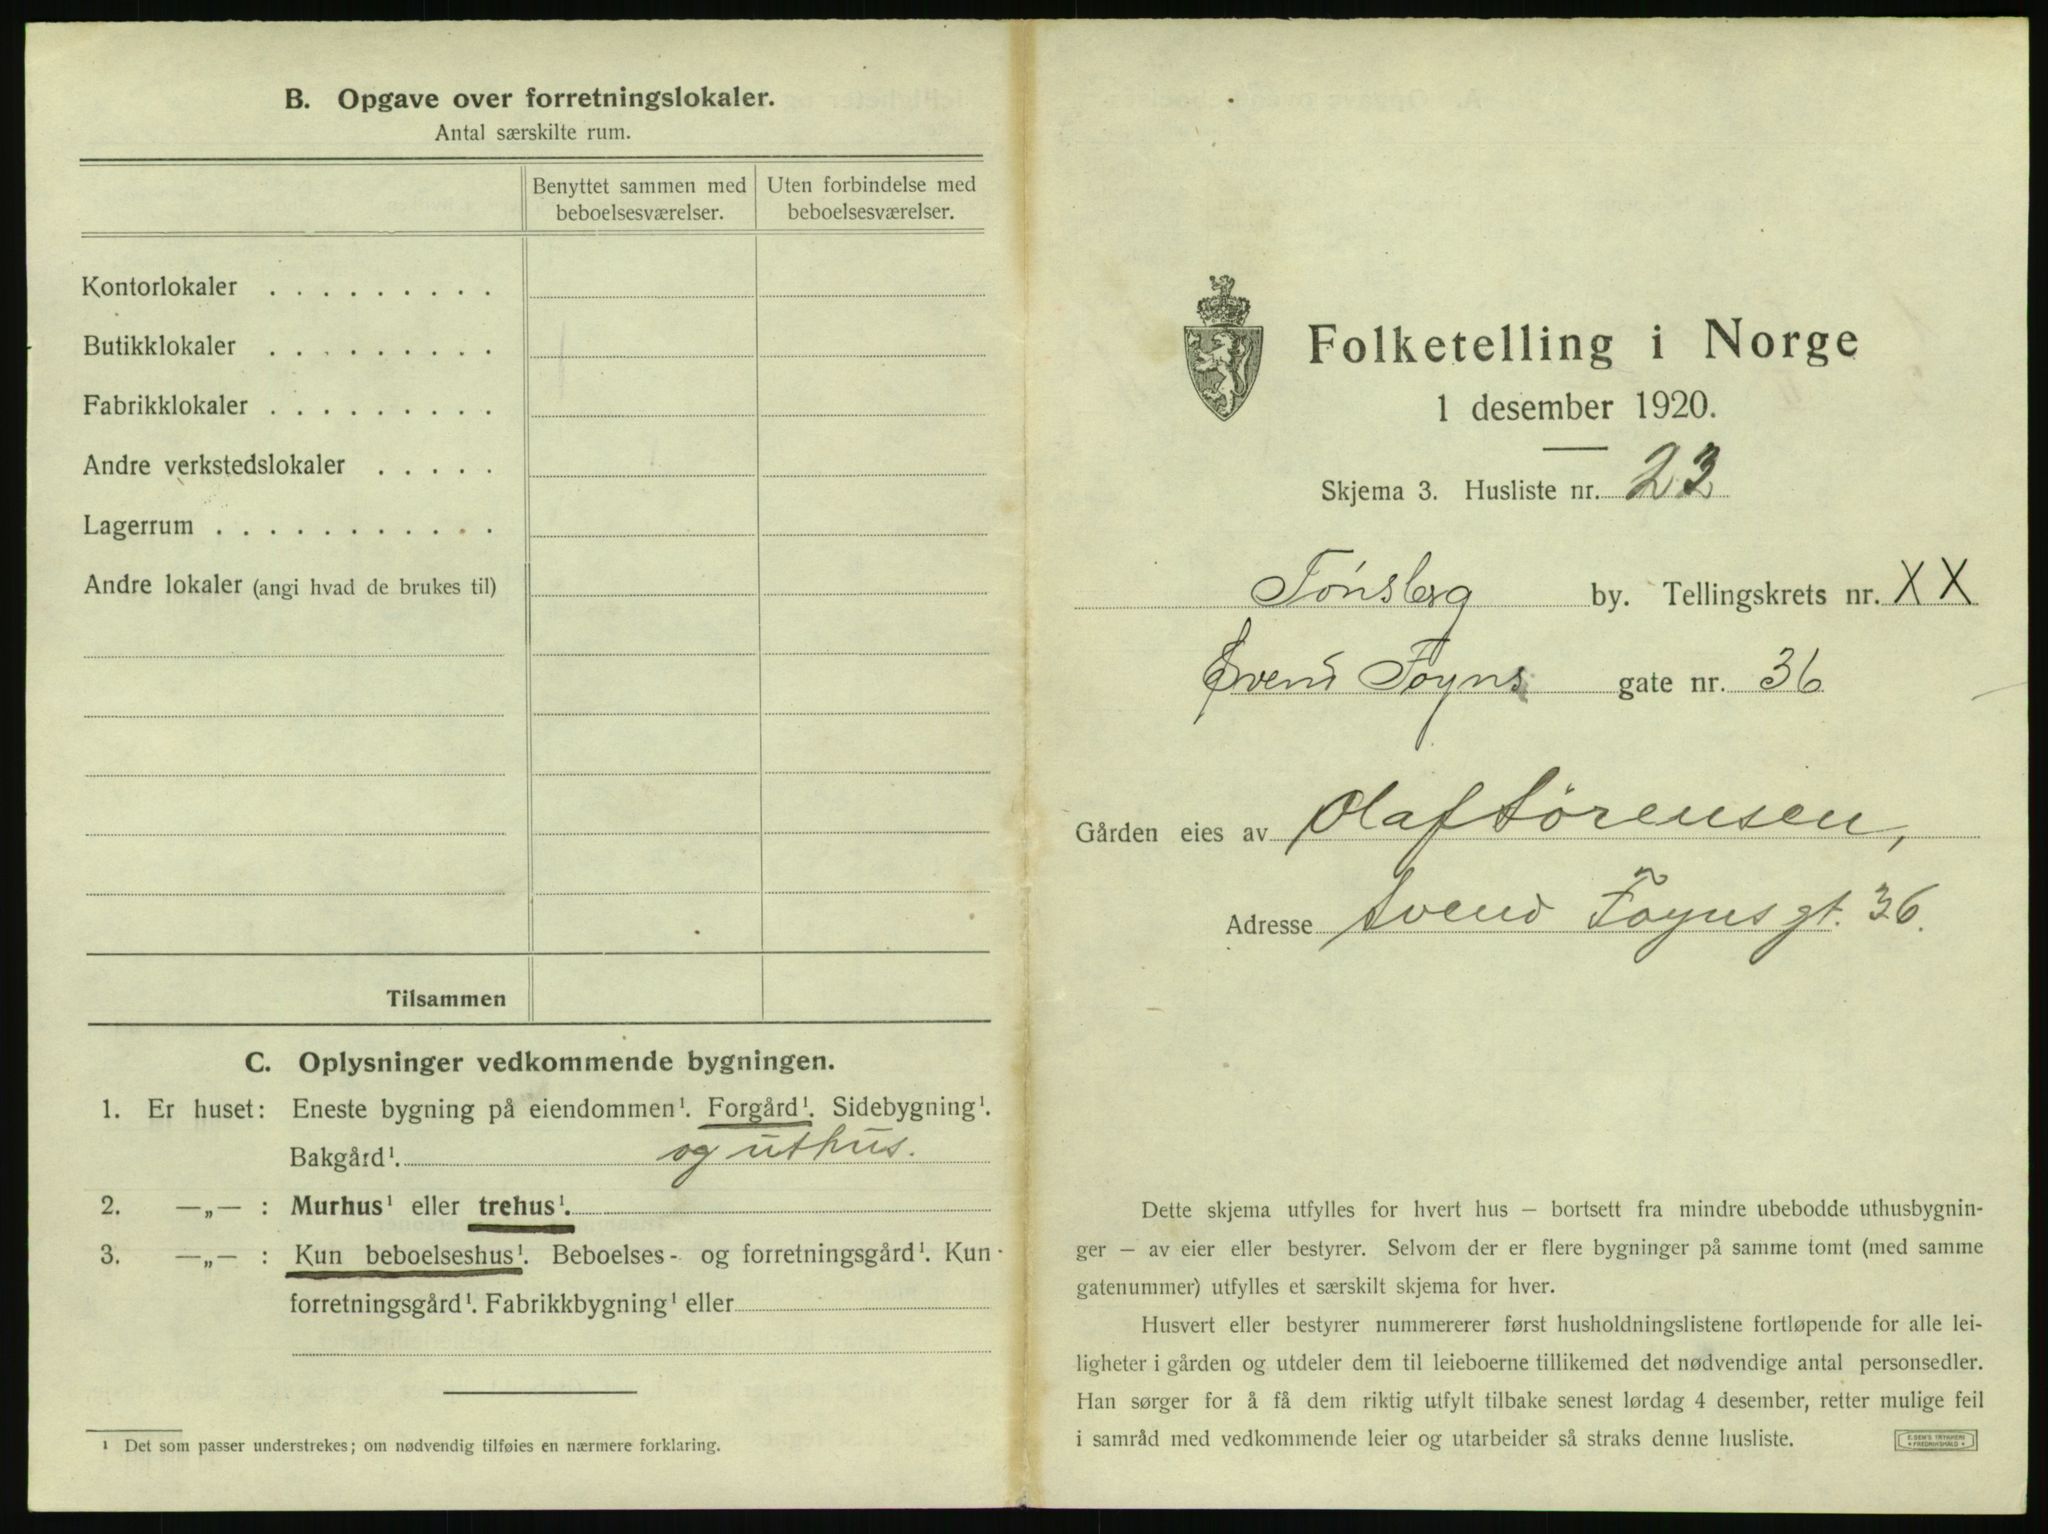 B. Opgave over forretningslokaler.
Antal særskilte rum.
Benyttet sammen med beboelsesværelser.
Uten forbindelse med beboelsesværelser.
Kontorlokaler . . . . . . . . .
Butikklokaler . . . . . . . . .
Fabrikklokaler . . . . . . . . .
Andre verkstedslokaler . . . . .
Lagerrum . . . . . . . . . . .
Andre lokaler (angi hvad de brukes til)
Tilsammen
C. Oplysninger vedkommende bygningen.
1. Er huset: Eneste bygning på eiendommen¹. Forgård¹. Sidebygning¹.
Bakgård¹. og uthus.
2. —„— : Murhus¹ eller trehus¹.
3. —„— : Kun beboelseshus¹. Beboelses- og forretningsgård¹. Kun
forretningsgård¹. Fabrikkbygning¹ eller
¹ Det som passer understrekes; om nødvendig tilføies en nærmere forklaring.
Folketelling i Norge
1 desember 1920.
Skjema 3. Husliste nr. 23
Tønsberg by. Tellingskrets nr. XX
Svend Foyns gate nr. 36
Gården eies av Olaf Sørensen,
Adresse Svend Foyns gt. 36.
Dette skjema utfylles for hvert hus — bortsett fra mindre ubebodde uthusbygnin-
ger — av eier eller bestyrer. Selvom der er flere bygninger på samme tomt (med samme
gatenummer) utfylles et særskilt skjema for hver.
Husvert eller bestyrer nummererer først husholdningslistene fortløpende for alle lei-
ligheter i gården og utdeler dem til leieboerne tillikemed det nødvendige antal personsedler.
Han sørger for å få dem riktig utfylt tilbake senest lørdag 4 desember, retter mulige feil
i samråd med vedkommende leier og utarbeider så straks denne husliste.
E. SEM'S TRYKKERI
FREDRIKSHALD